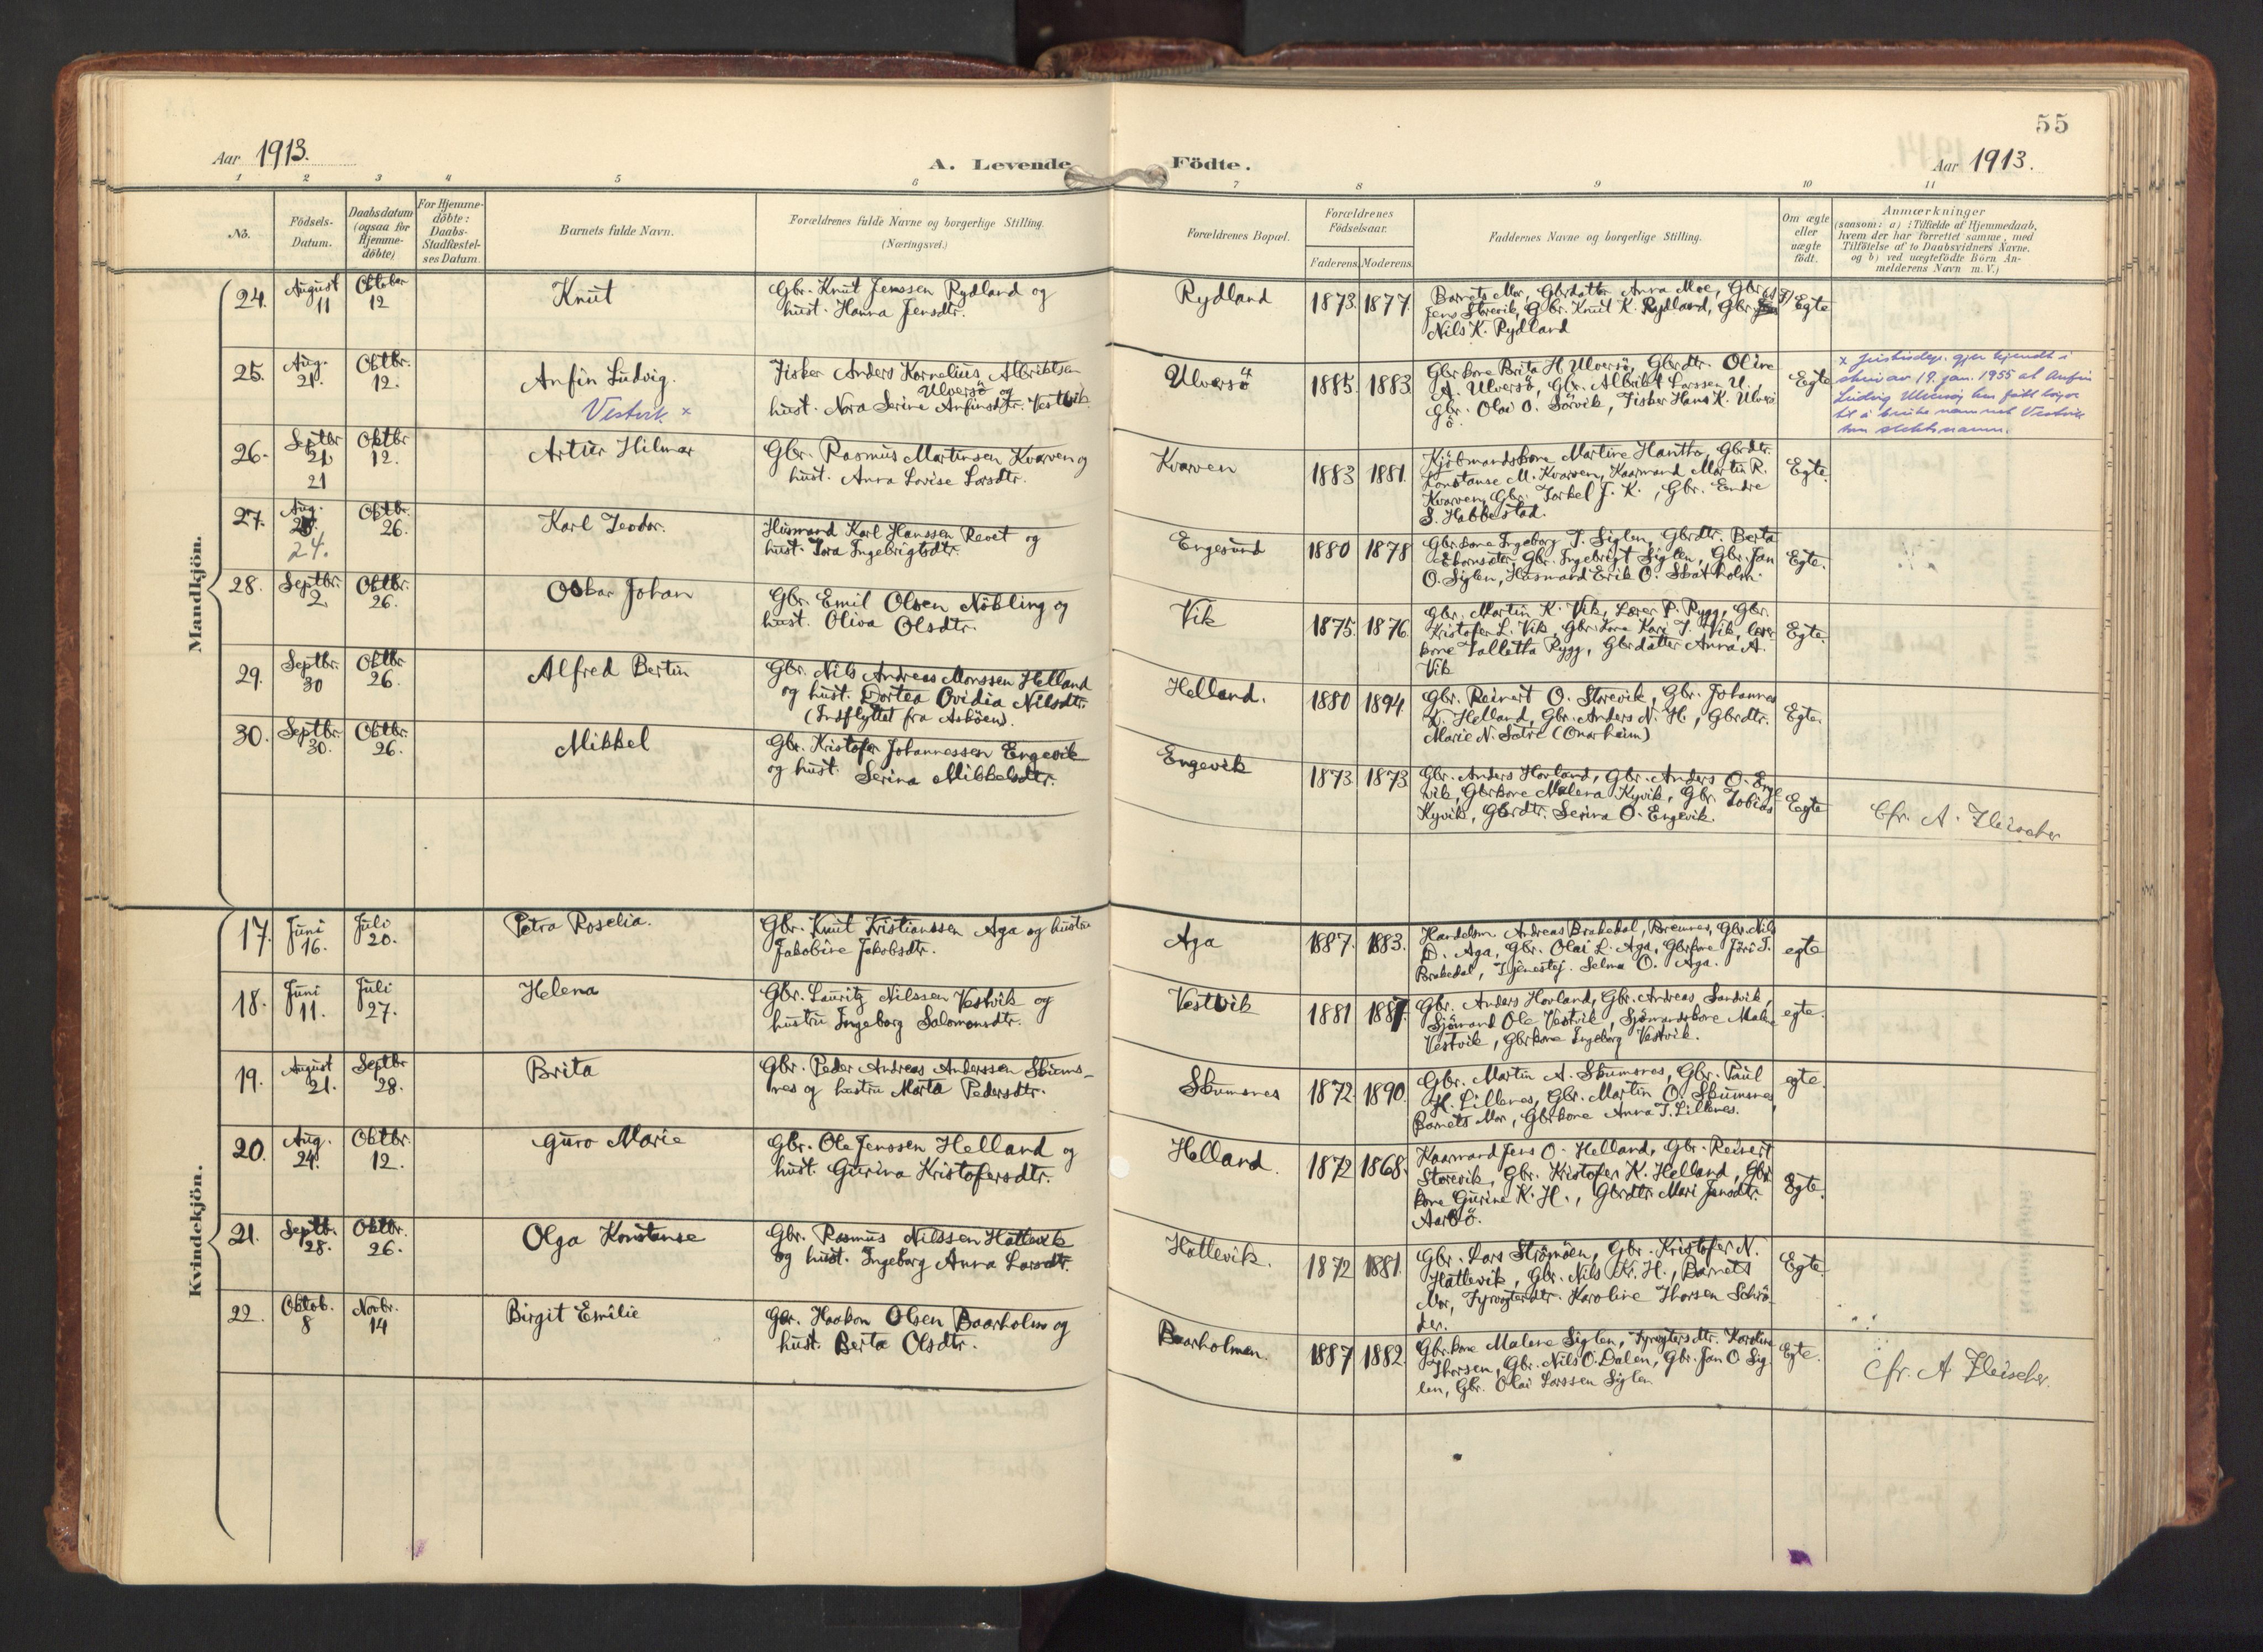 55
Aar 1913.
A. Levende Födte.
Aar 1913.
1 2 3 4 5 6 7 8 9 10 11
No.
Födsels-
Datum.
Daabsdatum
(ogsaa for
Hjemme-
döbte)
For Hjemme-
döbte:
Daabs-
Stadfæstel-
ses Datum.
Barnets fulde Navn.
Forældrenes fulde Navne og borgerlige Stilling.
(Næringsvei.)
Forældrenes Bopæl.
Forældrenes
Födselsaar.
Faderens. Moderens.
Faddernes Navne og borgerlige Stilling.
Om ægte
eller
uægte
födt.
Anmærkninger
(saasom: a) i Tilfælde af Hjemmedaab,
hvem der har forrettet samme, med
Tilföielse af to Daabsvidners Navne.
og b) ved uægtefödte Börn An-
melderens Navn m. V.)
Mandkjön.
24. August 11 Oktober 12 Knut
Gbr. Knut Jenssen Rydland og
hust. Hanna Jensdtr.
Rydland 1873. 1877.
Barnets Mor, Gbrdatter Anna Moe, Gbr.
Jens Storevik, Gbr. Knut K. Rydland, Gbr.
Nils K. Rydland
Egte
25. Aug. 21. Oktbr. 12. Anfin Ludvig.
Vestvik x
Fisker Anders Kornelius Albriktsen
Ulversö og
hust. Nora Serine Anfinsdtr. Vestvik
Ulversö 1885. 1883
Gbrkone Brita H Ulversö, Gbrdtr. Oline
A. Ulversö, Gbr. Albrikt Larssen U.,
Gbr. Olai O. Sörvik, Fisker Hans K. Ulvers
ö.
Egte
x Justisdep. gjer kjendt i
skriv av 19. jan. 1955 at Anfin
Ludvig Ulversöy har fått løyve
til å bruke namnet Vestvik
som slektsnamn.
26. Septbr 21 21 Oktbr 12. Artur Hilmar
Gbr. Rasmus Martinsen Kvarven og
hust. Anna Lovise Larsdtr.
Kvarven 1883 1881.
Kjöbmandskone Martine Hantho, Gbrdtr.
Konstanse M. Kvarven, Kaarmand Martin R.
Kvarven, Gbr. Torkel J. K., Gbr. Endre
S. Habbestad.
Egte.
27. Aug. 24. Oktbr. 26. Karl Teodor.
Husmand Karl Hanssen Revet og
hust. Tora Ingebrigtsdtr.
Engesund 1880 1878
Gbrkone Ingeborg T. Siglen, Gbrdtr. Berta
Ekornsæter, Gbr. Ingebrigt Siglen, Gbr. Jan
O. Siglen, Husmand Erik O. Skotholm.
Egte.
28. Septbr. 2. Oktbr. 26. Oskar Johan
Gbr. Emil Olsen Nökling og
hust. Oliva Olsdtr.
Vik 1875. 1876.
Gbr. Martin K. Vik, Lærer P. Rygg, Gbr.
Kristofer L. Vik, Gbrkone Kari T. Vik, lærer-
kone Talletta Rygg, Gbrdatter Anna A.
Vik
Egte.
29. Septbr. 30 Oktbr. 26. Alfred Bertin
Gbr. Nils Andreas Monssen Helland
og hust. Dortea Ovidia Nilsdtr.
(Indflyttet fra Asköen).
Helland. 1880 1894
Gbr. Reinert O. Storevik, Gbr. Johannes
K. Helland, Gbr. Anders N. H., Gbrdtr.
Marie N. Sætre (Onarheim)
Egte.
30. Septbr. 30. Oktbr. 26. Mikkel
Gbr. Kristofer Johannessen Engevik
og hust. Serina Mikkelsdtr.
Engevik 1873 1873
Gbr. Anders Hovland, Gbr. Anders O. Enge-
vik, Gbrkone Malena Kyvik, Gbr. Tobias
Kyvik, Gbrdtr. Serina O. Engevik.
Egte
Cfr. A. Fleischer
Kvindekjön.
17. Juni 16. Juli 20. Petra Roselia.
Gbr. Knut Kristianssen Aga og hustru
Jakobine Jakobsdtr.
Aga 1887. 1883.
Handelsm. Andreas Brakedal, Bremnes, Gbr. Nils
D. Aga, Gbr. Olai L. Aga, Gbrkone Jöri T.
Brakedal, Tjenestej. Selma O. Aga.
egte
18. Juni 11. Juli 27. Helena
Gbr. Lauritz Nilssen Vestvik og
hustru Ingeborg Salomonsdtr.
Vestvik 1881 1887.
Gbr. Anders Hovland, Gbr. Andreas Sandvik,
Sjömand Ole Vestvik, Sjömandskone Malene
Vestvik, Gbrkone Ingeborg Vestvik.
egte.
19. August 21. Septbr 28. Brita
Gbr. Peder Andreas Anderssen Skums-
nes og hustru Marta Pedersdtr.
Skumsnes 1872. 1890.
Gbr. Martin A. Skumsnes, Gbr. Paul
H. Lillenes, Gbr. Martin O. Skumsnes,
Barnets Mor, Gbrkone Anna T. Lillenes.
egte.
20. Aug. 24. Oktbr. 12. Guro Marie
Gbr. Ole Jenssen Helland og
hust. Gurina Kristofersdtr.
Helland. 1872 1868.
Kaarmand Jens O. Helland, Gbr. Reinert
Storevik, Gbr. Kristofer K. Helland, Gbr
kone Gurine K. H., Gbrdtr. Mari Jensdtr.
Aarbö.
Egte.
21. Septbr. 28. Oktbr. 26. Olga Konstanse
Gbr. Rasmus Nilssen Hatlevik
og hust. Ingeborg Anna Larsdtr.
Hatlevik. 1872 1881.
Gbr. Lars Strömöen, Gbr. Kristofer N.
Hatlevik, Gbr. Nils Kr. H., Barnets
Mor, Fyrvogterdtr. Karoline Thorsen Schrö-
der.
Egte.
22. Oktob. 8 Novbr. 14 Birgit Emilie
Gbr. Haakon Olsen Baarholm og
hust. Berta Olsdtr.
Baarholmen. 1887 1882.
Gbrkone Malene Siglen, Fyrvogtersdtr. Karoline
Thorsen, Gbr. Nils O. Dalen, Gbr. Jan O Sig-
len, Gbr. Olai Larssen Siglen
Egte.
Cfr. A Fleischer.